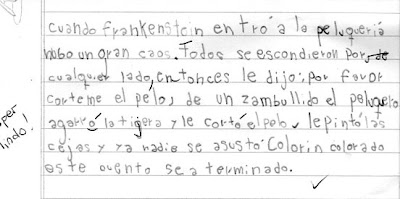 cuando frankenstein entró a la peluqueriá
hubo un gran caos. Todos se escondieron por
cualquier lado, entonces le dijo: por favor
corteme el pelo, de un zambullido el peluquero
agarró la tigera y le cortó el pelo, le pintó las
cejas y ya nadie se asustó. Colorin colorado
este cuento se a terminado.